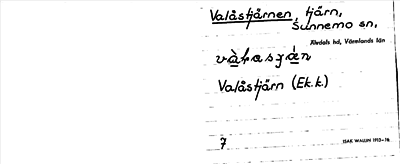 Valåstjärnen, tjärn,
Sunnemo sn,
Älvdals hd, Värmlands län
Valåstjärn (Ek.k.)
7
ISAK WALLIN 1915–16